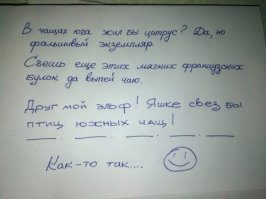 В чащах юга жил бы цитрус? Да, но
фальшивый экземпляр
Съешь ещё этих мягких французских
булок да выпей чаю.
Друг мой эльф! Яшке свёз бы
птиц южных чащ!
Как-то так....